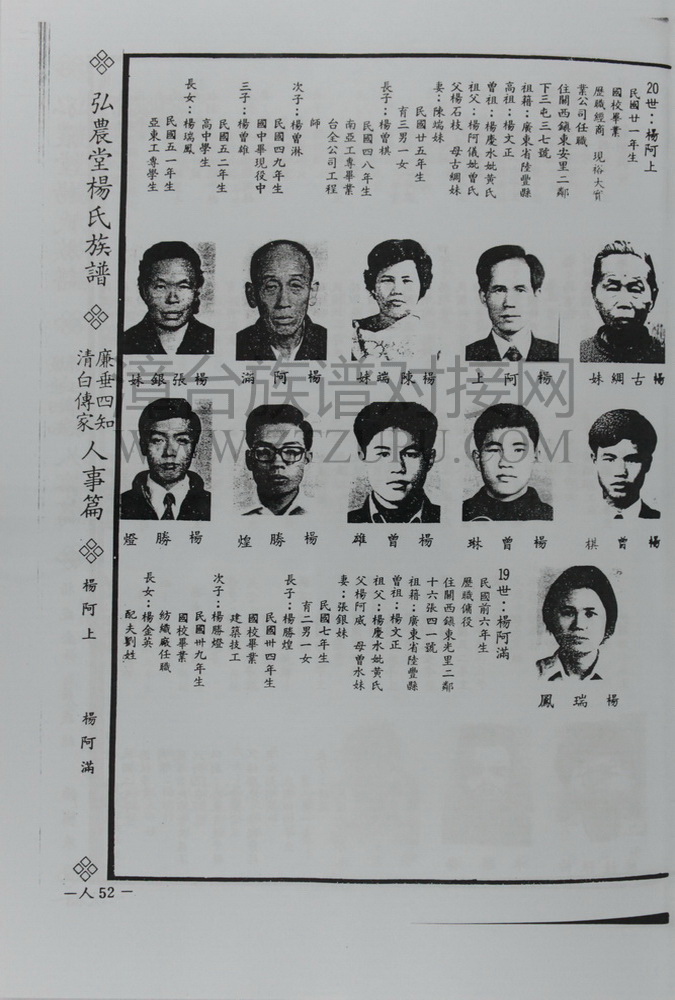 20世：楊阿上
民國廿一年生
國校畢業
歷職經商　現裕大實
業公司任職
住關西鎮東安里二鄰
下三屯三七號
祖籍：廣東省陸豐縣
高祖：楊文正
曾祖：楊慶水妣黃氏
祖父：楊阿儀妣曾氏
父楊石枝　母古綢妹
妻：陳端妹
民國廿五年生
育三男一女
長子：楊曾棋
民國四八年生
南亞工專畢業
台全公司工程
師
次子：楊曾淋
民國四九年生
國中畢現役中
三子：楊曾雄
民國五二年生
高中學生
長女：楊瑞鳳
民國五一年生
亞東工專學生
楊古綢妹
楊阿上
楊陳端妹
楊阿滿
楊張銀妹
楊曾棋
楊曾琳
楊曾雄
楊勝煌
楊勝燈
楊瑞鳳
19世：楊阿滿
民國前六年生
歷職傭役
住關西鎮東光里二鄰
十六張四一號
祖籍：廣東省陸豐縣
曾祖：楊文正
祖父：楊慶水妣黃氏
父楊阿威　母曾水妹
妻：張銀妹
民國七年生
育二男一女
長子：楊勝煌
民國卅四年生
國校畢業
建築技工
次子：楊勝燈
民國卅九年生
國校畢業
紡織廠任職
長女：楊金英
配夫劉姓
弘農堂楊氏族譜
廉垂四知
清白傳家
人事篇
楊阿上
楊阿滿
—人52—
漳台族谱对接网
WWW.ZTZUPU.COM